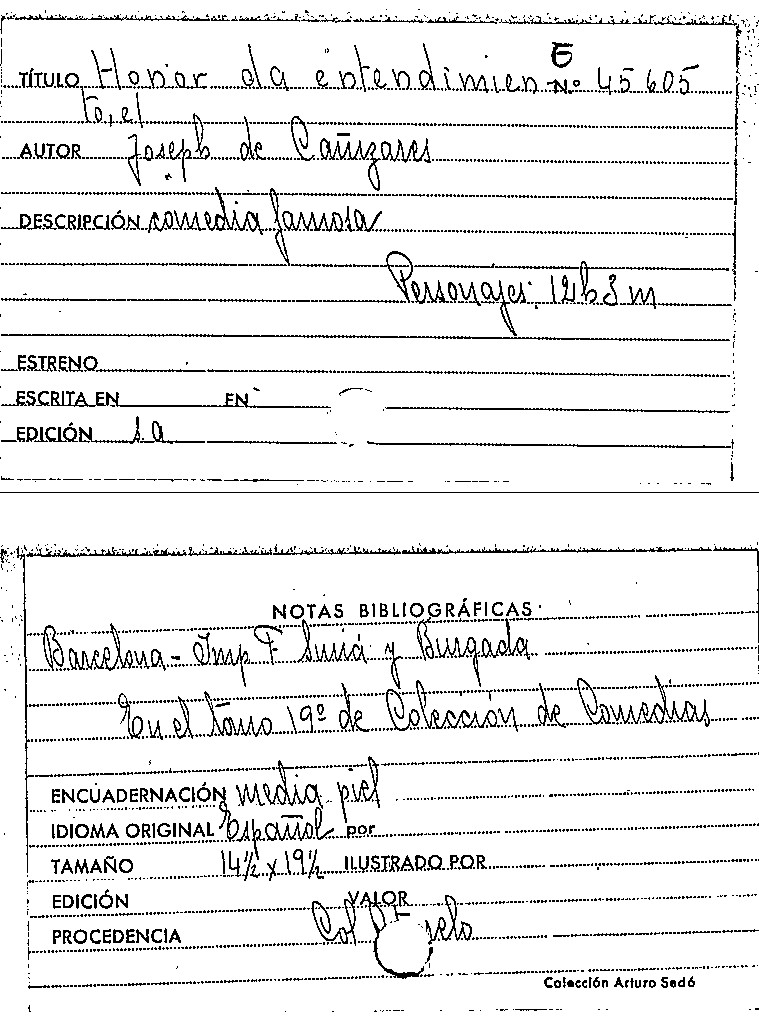 E
TÍTULO Honor da entendimien Nº 45605
to, el
AUTOR Joseph de Cañizares
DESCRIPCIÓN comedia famosa
Personajes: 12h 3m
ESTRENO
ESCRITA EN EN
EDICIÓN s.a
NOTAS BIBLIOGRÁFICAS
Barcelona - Imp F Suriá y Burgada
En el tomo 19º de Colección de Comedias
ENCUADERNACIÓN media piel
IDIOMA ORIGINAL Español por
TAMAÑO 14½ x 19½ ILUSTRADO POR
EDICIÓN VALOR
PROCEDENCIA Col
Colección Arturo Sedó